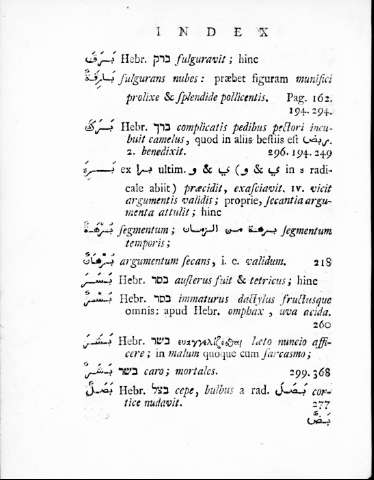 INDEX
بَرَقَ Hebr. ברק fulguravit; hinc
بَارِقَةٌ fulgurans nubes: præbet figuram munifici
prolixe & splendide pollicentis. Pag. 162.
194. 294.
بَرَكَ Hebr. ברך complicatis pedibus pectori incu-
buit camelus, quod in aliis bestiis est ربض.
2. benedixit. 296. 194. 249
ex برا ultim. و & ي (و & ي in ه radi-
cale abiit) præcidit, exasciavit. IV. vicit
argumentis validis; proprie, secantia argu-
menta attulit; hinc
بُرْهَةٌ segmentum; برهة من الزمان segmentum
temporis;
بُرْهَانٌ argumentum secans, i. e. validum. 218
بَسَرَ Hebr. בסר austerus fuit & tetricus; hinc
بُسْرٌ Hebr. בסר immaturus dactylus fructusque
omnis: apud Hebr. omphax, uva acida.
260
بَشَرَ Hebr. בשר ευαγγελίζεσθαι læto nuncio affi-
cere; in malum quoque cum sarcasmo;
بَشَرٌ בשר caro; mortales. 299. 368
بَصَلٌ Hebr. בצל cepe, bulbus a rad. بَصَلَ cor-
tice nudavit. 277
بَضَّ